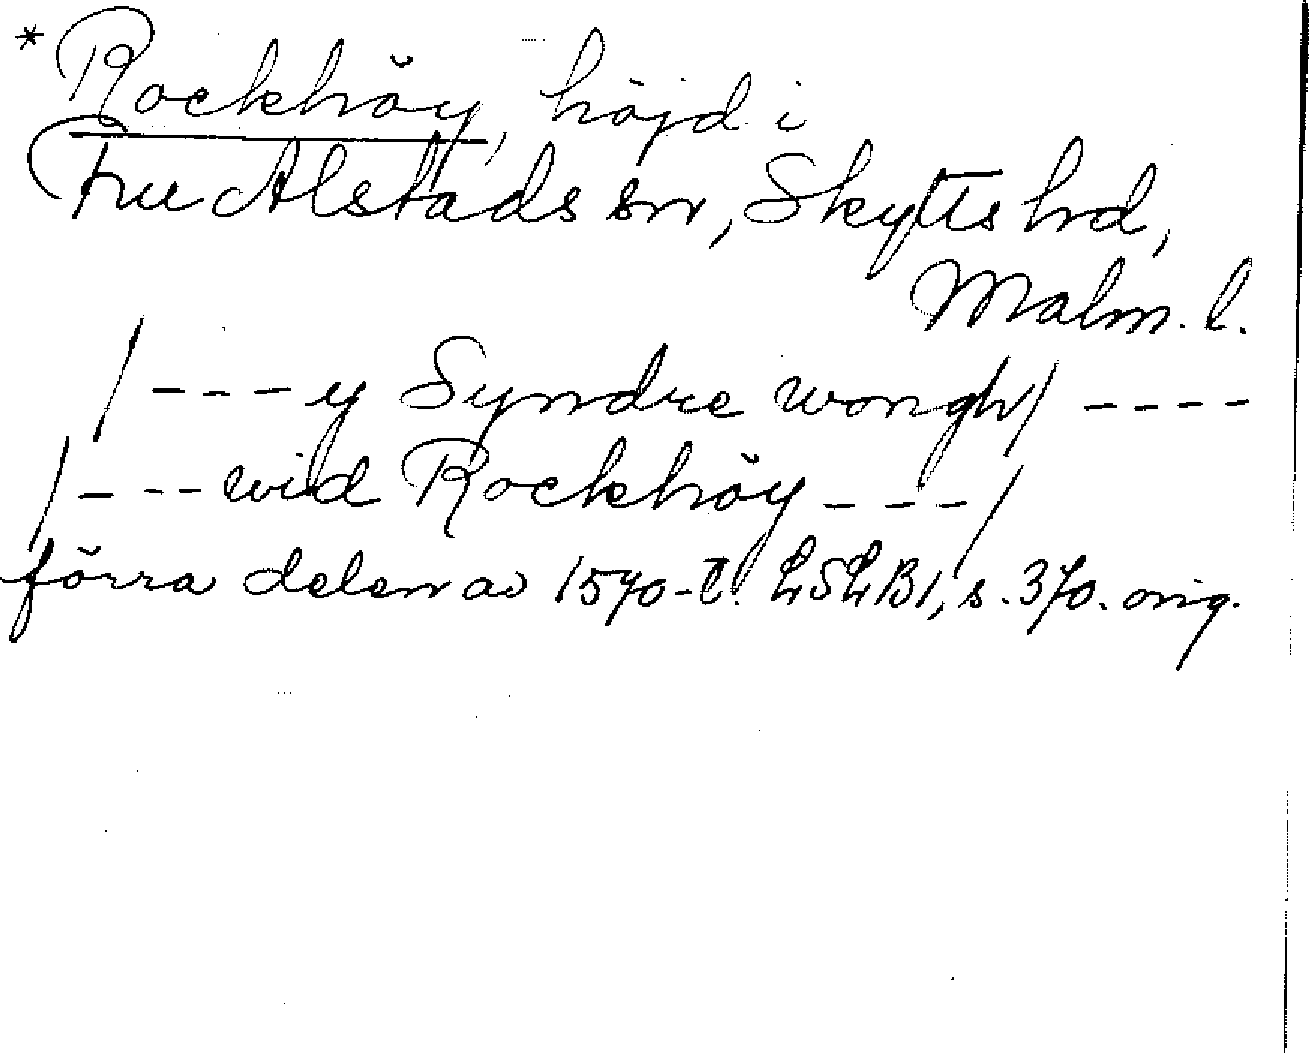 *Rockhöy, höjd i
Fru Alstads sn, Skytts hd,
Malm. l.
/ - - - y Syndre wongh/ - - - -
/ - - - wid Rockhöy - - - /
förra delen av 1570-t. LSLB1, s. 370. orig.